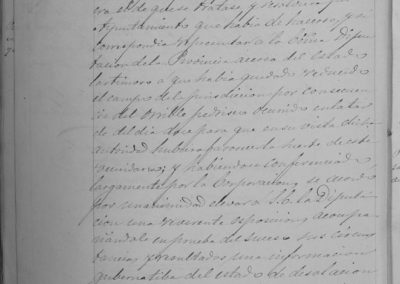 era el de que se tratase y resolviese
Ayuntamiento que habia de hacerse, y se
correspondia representar a la Exma Dipu
tacion de la Provincia acerca del estado
lastimoso a que habia quedado reducido
el campo de la jurisdiccion por consecuen
cia del terrible pedrisco ocurrido en la tar
de del dia doce para que en su vista dicha
autoridad hubiera favorecer la suerte de este
vecindario; y habiendose conferenciado
largamente por la Corporacion, se acordó
por unanimidad elevar a S.E. la Diputa
cion una reverente esposicion, acompa
ñándola en prueba del suceso sus circuns
tancias y resultados una informacion
gubernatiba del estado de desolacion